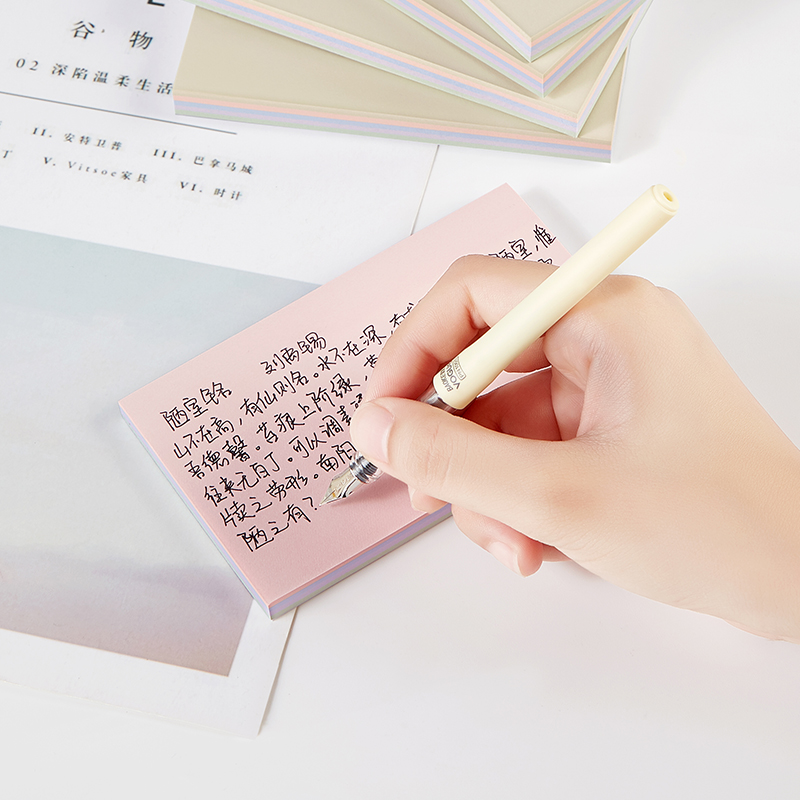 谷物
02 深陷温柔生活
II. 安特卫普 III. 巴拿马城
丁 V. Vitsoe家具 VI. 时计
陋室铭 刘禹锡
山不在高，有仙则名。水不在深，有 陋室，惟
吾德馨。苔痕上阶绿，草
往来无白丁。可以调素
牍之劳形。南阳
陋之有？